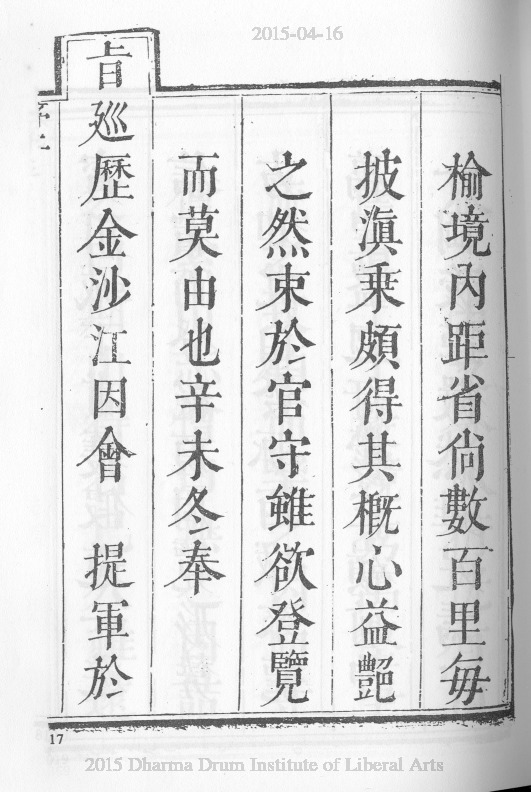 2015-04-16
榆境內距省尙數百里每
披滇乘頗得其概心益艷
之然束於官守雖欲登覽
而莫由也辛未冬奉
旨廵歷金沙江因會　提軍於
17
2015 Dharma Drum Institute of Liberal Arts